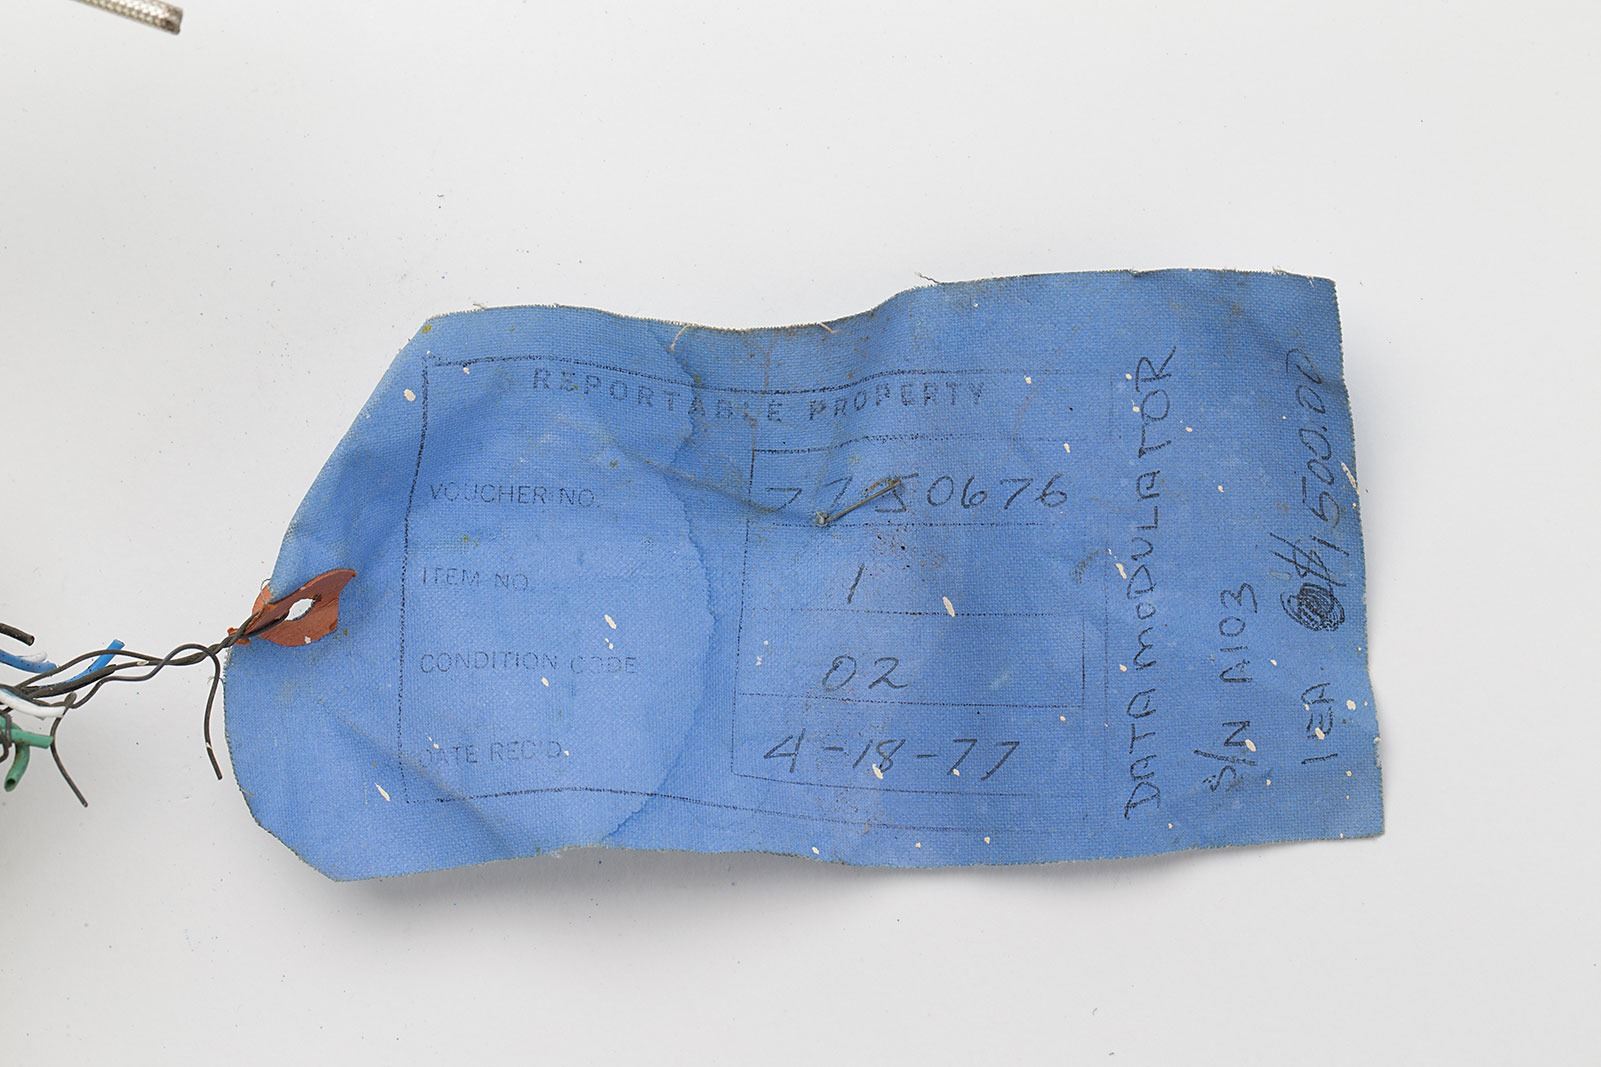 REPORTABLE PROPERTY
VOUCHER NO. 7750676
ITEM NO. 1
CONDITION CODE 02
DATE REC'D. 4-18-77
DATA MODULATOR
S/N A103
1 EA. $1500.00